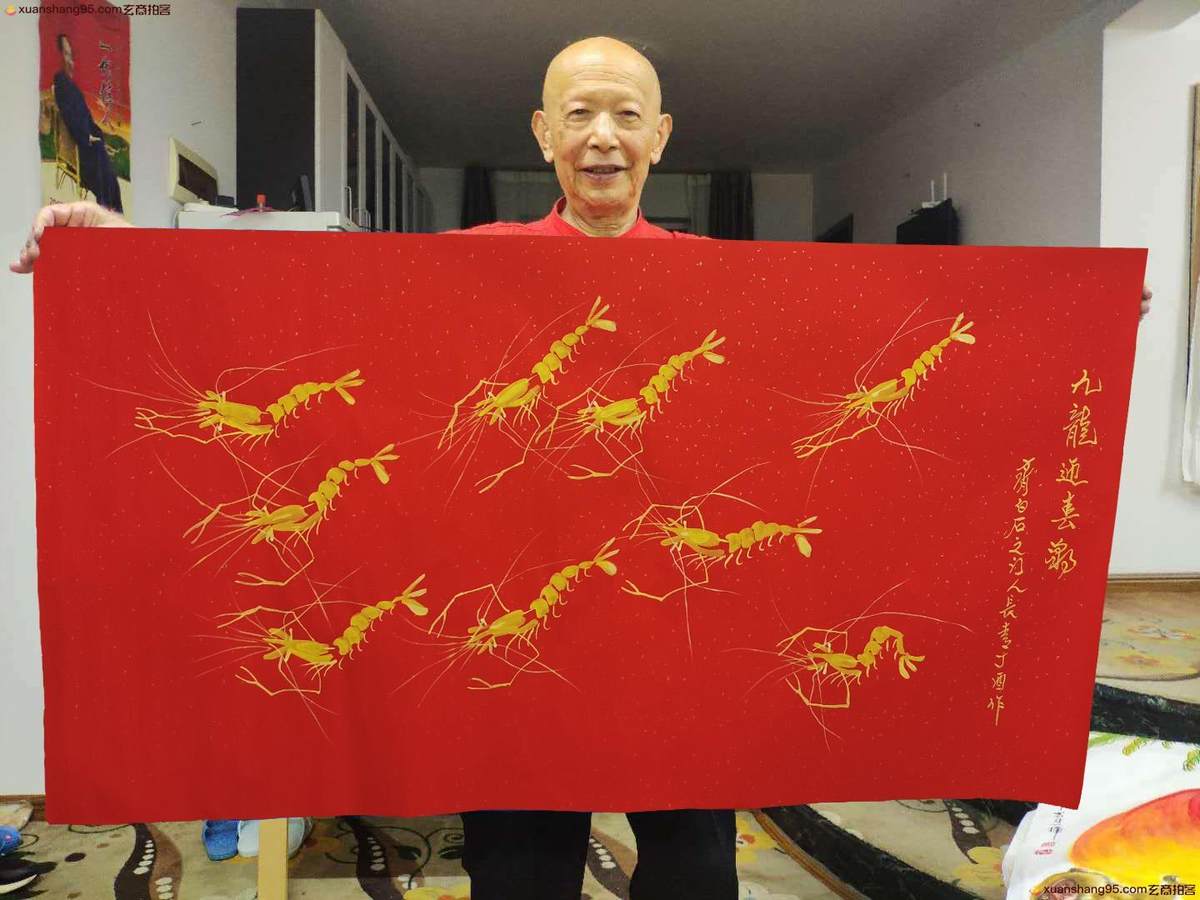 xuanshang95.com玄商拍客
九龍迎春翔
齊白石之门人長青丁酉作
xuanshang95.com玄商拍客